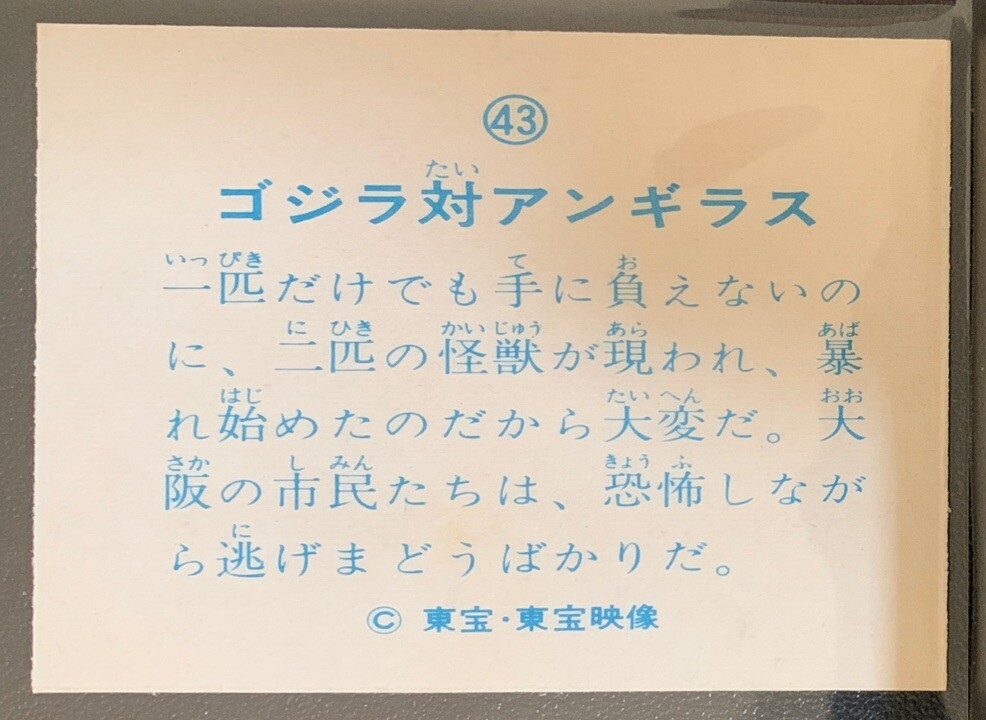 ㊸
ゴジラ対アンギラス
一匹だけでも手に負えないの
に、二匹の怪獣が現われ、暴
れ始めたのだから大変だ。大
阪の市民たちは、恐怖しなが
ら逃げまどうばかりだ。
© 東宝・東宝映像